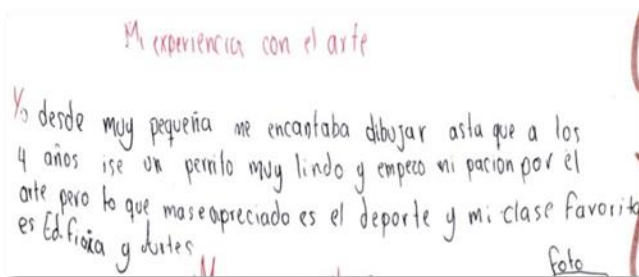 Mi experiencia con el arte
Yo desde muy pequeña me encantaba dibujar asta que a los
4 años ise un perrito muy lindo y empezo mi pacion por el
arte pero lo que mas e apreciado es el deporte y mi clase favorita
es Ed. ficica y Artes
foto